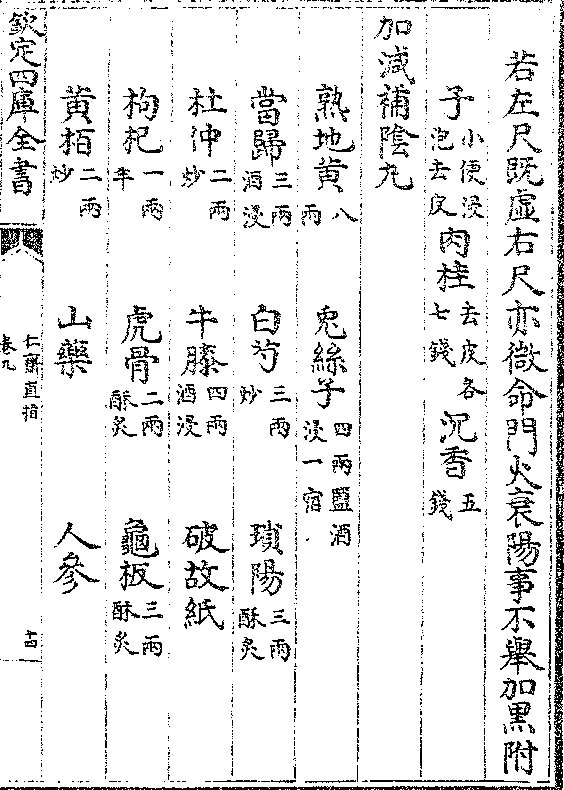 若左尺既虛右尺亦微命門火衰陽事不舉加黒附
子小便浸泡去皮肉桂去皮各七錢沉香五錢
加減補陰丸
熟地黃八兩　兎絲子四兩鹽酒浸一宿
當歸三兩酒浸　白芍三兩炒　瑣陽三兩酥炙
杜仲二兩炒　牛膝四兩酒浸　破故紙
枸杞一兩半　虎骨二兩酥炙　龜板三兩酥炙
黃栢二兩炒　山藥　人參
欽定四庫全書　仁齋直指卷九　十四